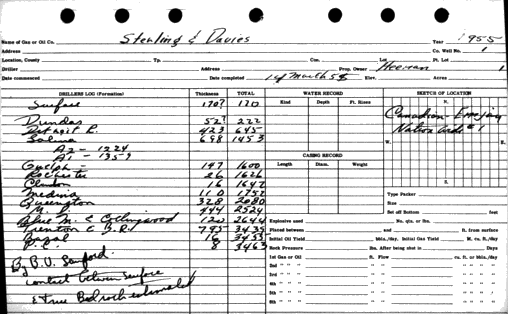 Name of Gas or Oil Co. Sterling & Davies Year 1955
Address Co. Well No. 1
Location, County Tp. Con. Lot Pt. Lot 1
Driller Address Prop. Owner
Date commenced Date completed 14 March 58 Elev. Acres
DRILLERS LOG (Formation) Thickness TOTAL WATER RECORD SKETCH OF LOCATION
Kind Depth Ft. Rises N.
Surface 170? 170
Dundas 52? 222
Detroit R. 423 645
Salina 698 1453
A2 - 1224
A1 - 1359
W.
CASING RECORD
Length Diam. Weight
Guelph 147 1600
Rochester 26 1626
Clinton 16 1642
Medina 110 1752
Queenston 328 2080
444 2524
Blue M. & Collingwood 120 2644
Trenton & B.R. 795 3439
Basal 16 3455
P.C. 8 3463
S.
Type Packer
Size
Set off Bottom feet
Explosive used No. qts. or lbs.
Placed between and ft. from surface
Initial Oil Yield bbls./day, Initial Gas Yield M. cu. ft./day
Rock Pressure lbs. After being shut in Days
1st Gas or Oil ft. Flow cu. ft. or bbls./day
2nd " "
3rd " "
4th " "
5th " "
6th " "
By B.V. Sanford.
contact between surface
& true Bedrock estimated